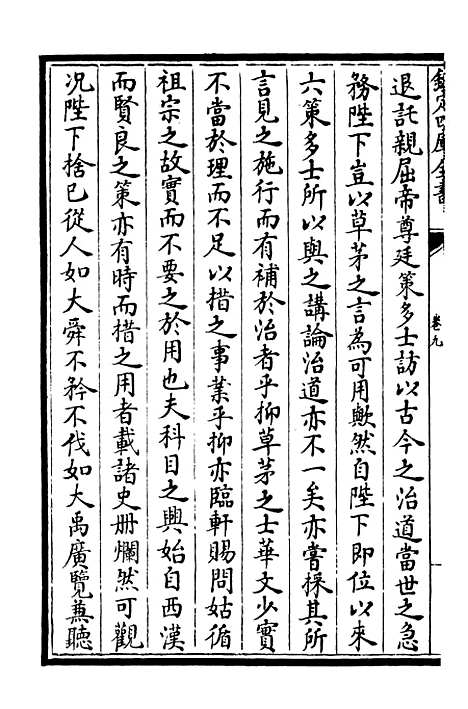 欽定四庫全書
卷九
退託親屈帝尊廷策多士訪以古今之治道當世之急
務陛下豈以草茅之言為可用歟然自陛下即位以來
六策多士所以與之講論治道亦不一矣亦嘗採其所
言見之施行而有補於治者乎抑草茅之士華文少實
不當於理而不足以措之事業乎抑亦臨軒賜問姑循
祖宗之故實而不要之於用也夫科目之興始自西漢
而賢良之策亦有時而措之用者載諸史册爛然可觀
况陛下捨已從人如大舜不矜不伐如大禹廣覽蕪聽